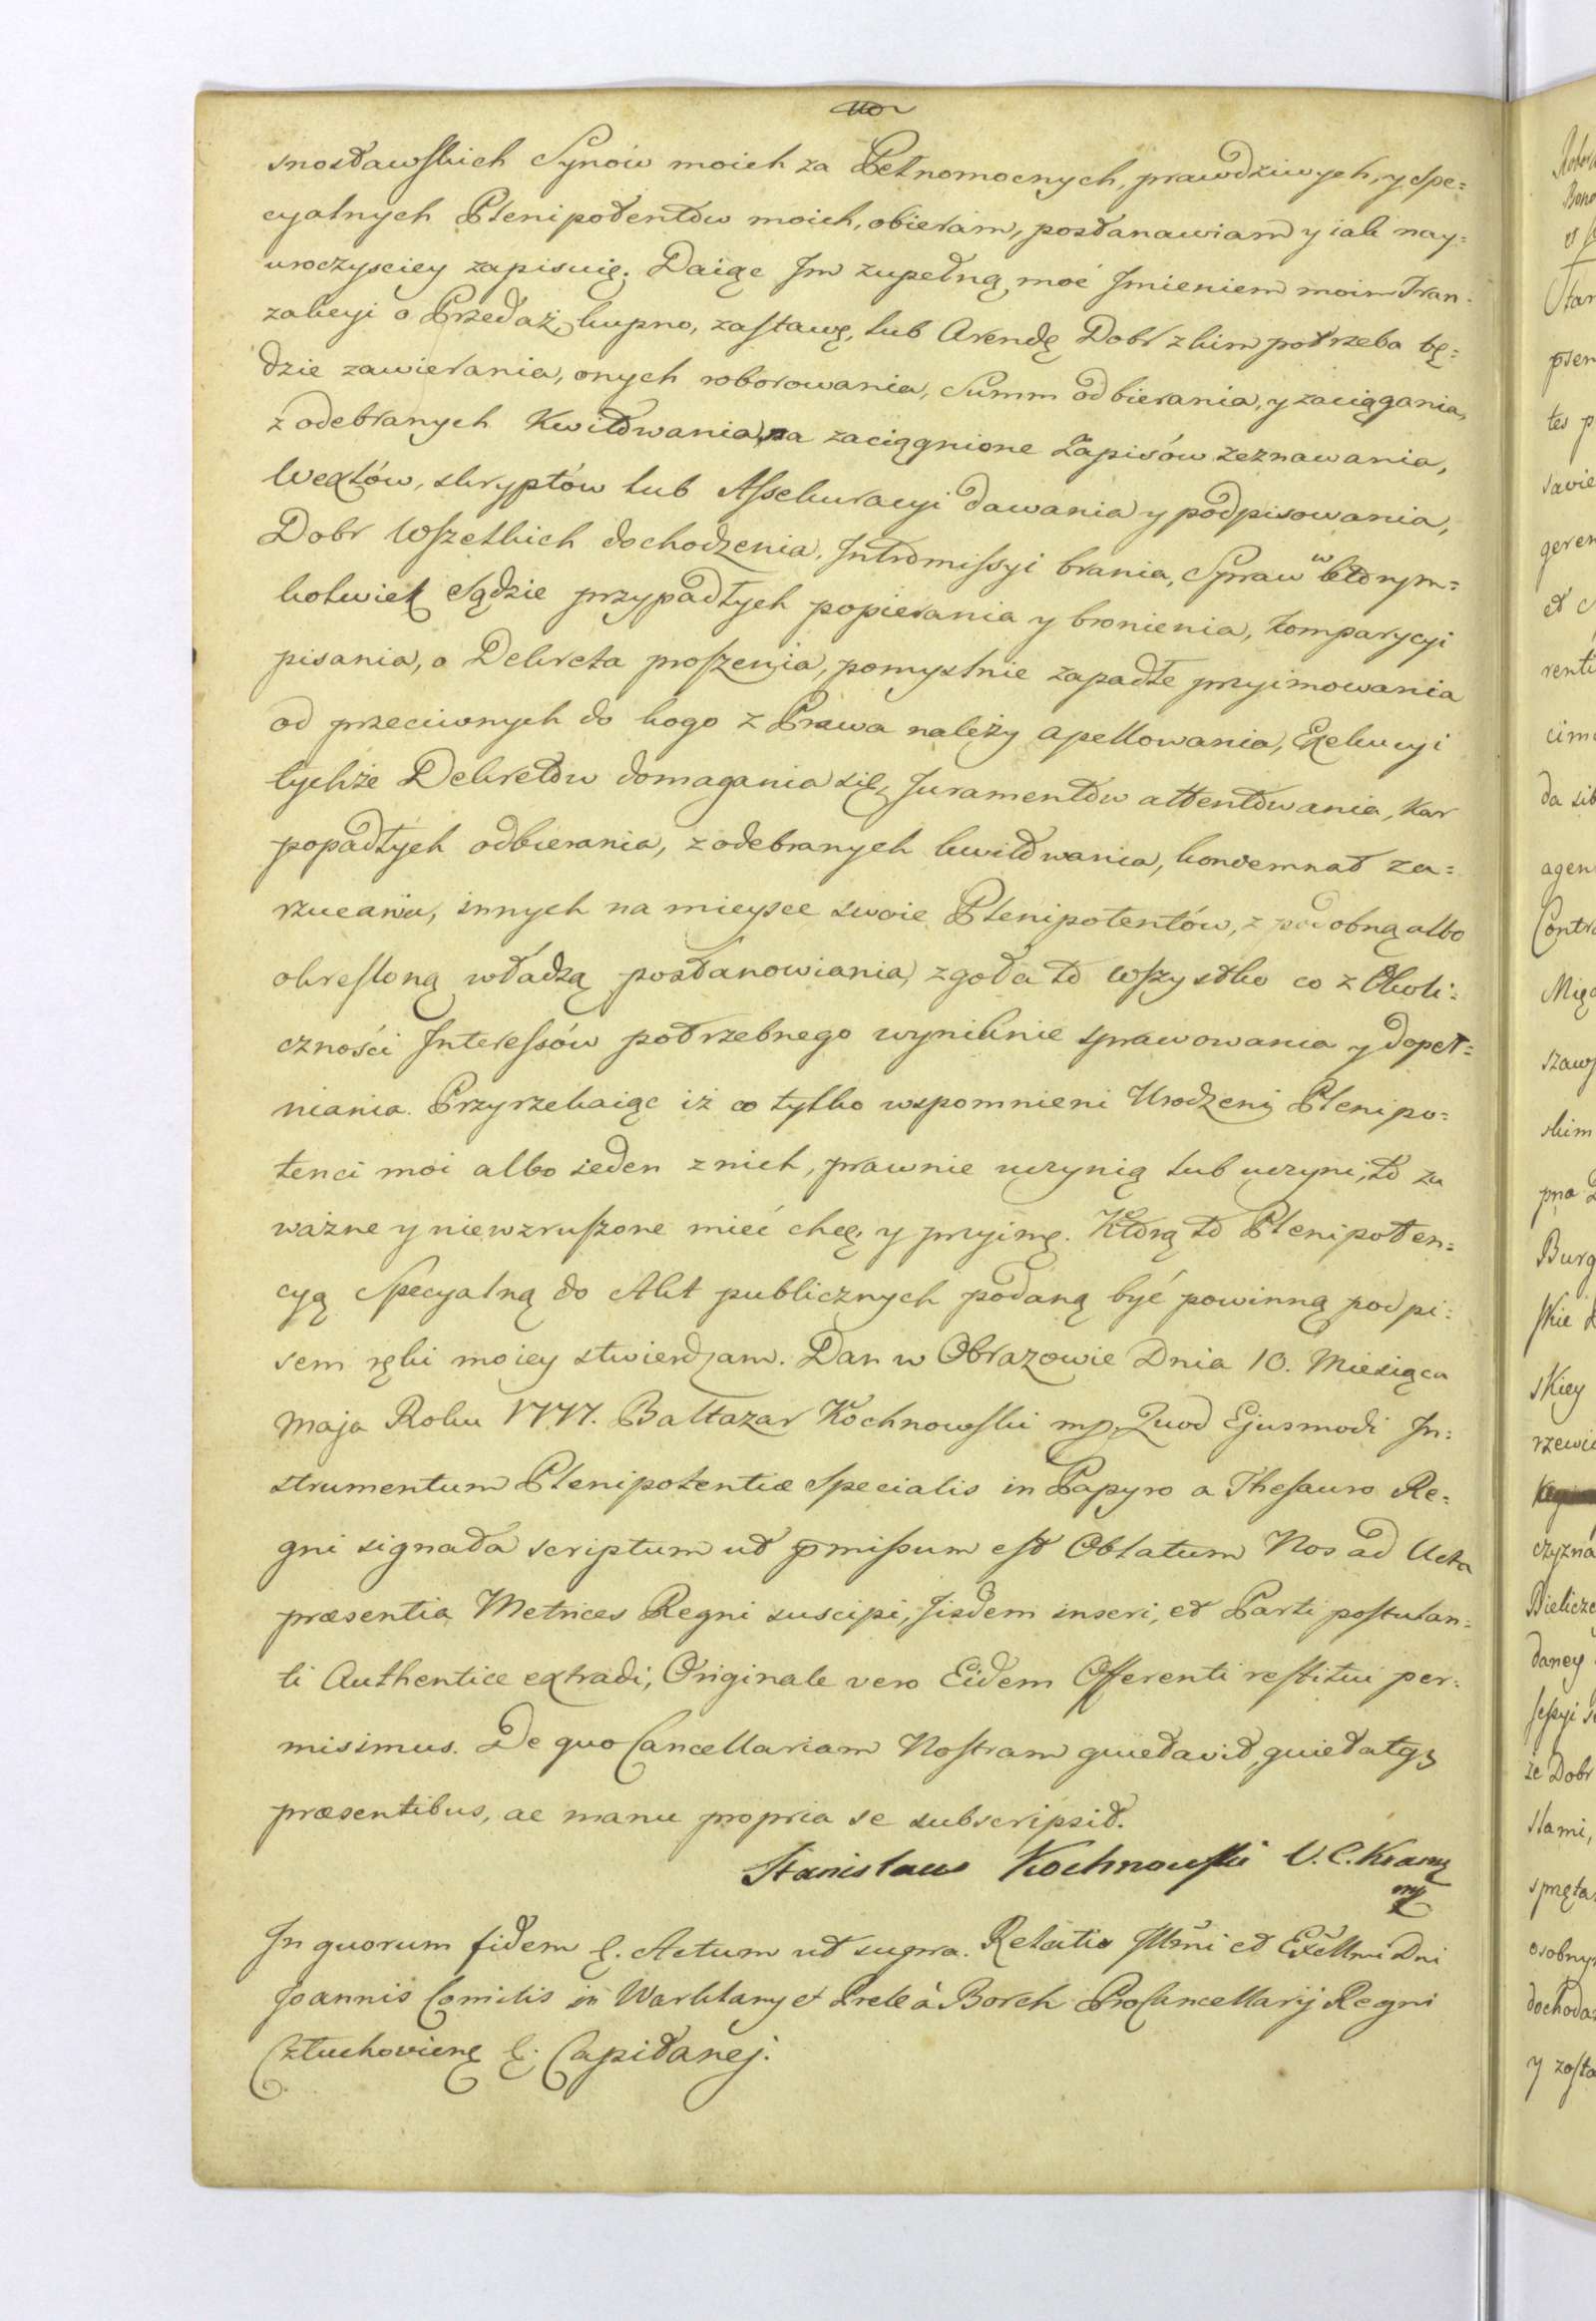 110
snostawskich Synów moich za Pełnomocnych, prawdziwych, y Spe=
cyalnych Plenipotentow moich, obieram, postanawiam y iak nay=
uroczyściey zapisuię. Daiąc Im zupełną moć Imieniem moim Tran=
zakcyi o Przedaż, kupno, zastawę, lub Arendę Dobr z kim potrzeba bę=
dzie zawierania, onych roborowania, Summ odbierania, y zaciągania,
z odebranych Kwitowania, na zaciągnione Zapisów zeznawania,
Wexlów, skryptów lub Assekuracyi dawania y podpisowania,
Dobr Wszelkich dochodzenia, Intromissyi brania, Spraw w ktorym=
kolwiek Sądzie przypadłych popierania y bronienia, Komparycyi
pisania, o Dekreta proszenia, pomyslnie zapadłe przyimowania
od przeciwnych do kogo z Prawa należy apellowania, Exekucyi
tychże Dekretow domagania się, Juramentow attentowania, Kar
popadłych odbierania, z odebranych kwitowania, kondemnat za=
rzucania, innych na mieysce swoie Plenipotentów, z podobną albo
okresloną władzą postanowiania, zgoła to wszystko co z Okoli=
czności Interessów potrzebnego wyniknie sprawowania y dopeł=
niania. Przyrzekaiąc iż co tylko wspomnieni Urodzeni Plenipo=
tenci moi albo ieden z nich, prawnie uczynią lub uczyni, to za
ważne y niewzruszone mieć chcę, y przyimę. Którą to Plenipoten=
cyą Specyalną do Akt publicznych podaną być powinną podpi=
sem ręki moiey stwierdzam. Dan w Obrazowie Dnia 10. Miesiąca
Maja Roku 1777. Baltazar Kochnowski mp. Quod Ejusmodi In=
strumentum Plenipotentiæ Specialis in Papyro a Thesauro Re=
gni signata scriptum ut pmissum est Oblatum Nos ad Acta
præsentia Metrices Regni suscipi, Iisdem inseri, et Parti postulan=
ti Authentice extradi, Originale vero Eidem Offerenti restitui per=
misimus. De quo Cancellariam Nostram quietavit, quietatq3
præsentibus, ac manu propria se subscripsit.
Stanislaus Kochnowski V. C. Krany
mp
In quorum fidem &. Actum ut supra. Relatio Illmi et Excellmi Dni
Joannis Comitis in Warklany et Prele à Borch ProCancellarij Regni
Człuchovien &. Capitanej.